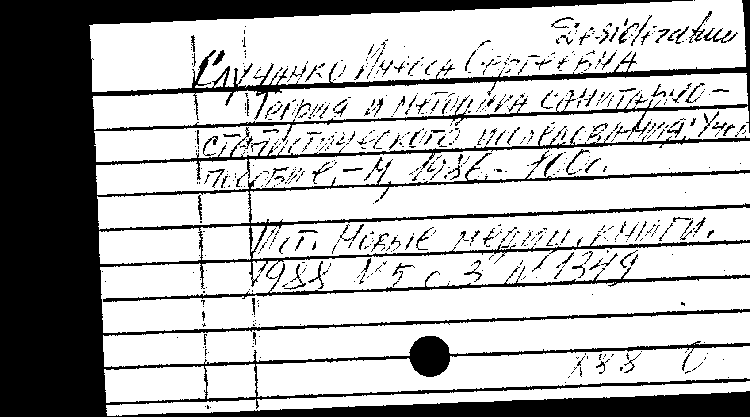 Desiderata
Случанко Инесса Сергеевна
Теория и методика санитарно-
статистического исследования: Учеб
пособие. – М, 1986. – 100с.
Ист. Новые медиц. книги.
1988 N 5 с. 3 N 1349
X 88